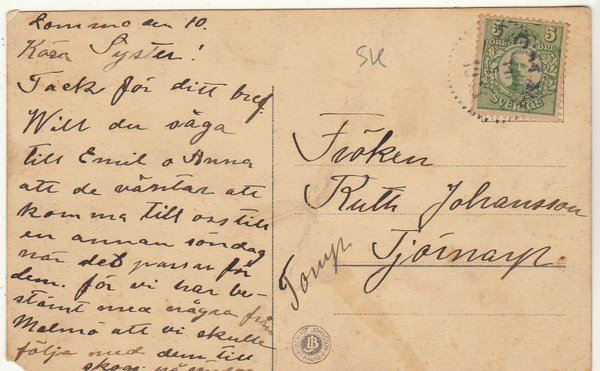 Lomma den 10.
Kära Syster!
Tack för ditt bref.
Will du säga
till Emil o Anna
att de väntar att
komma till oss till
en annan söndag
när det passar för
dem. för vi har be-
stämt med några från
Malmö att vi skulle
följa med dem till
skogen
SK
5 5
ÖRE ÖRE
SVERIGE
Fröken
Ruth Johansson
Tjörnarp
JB